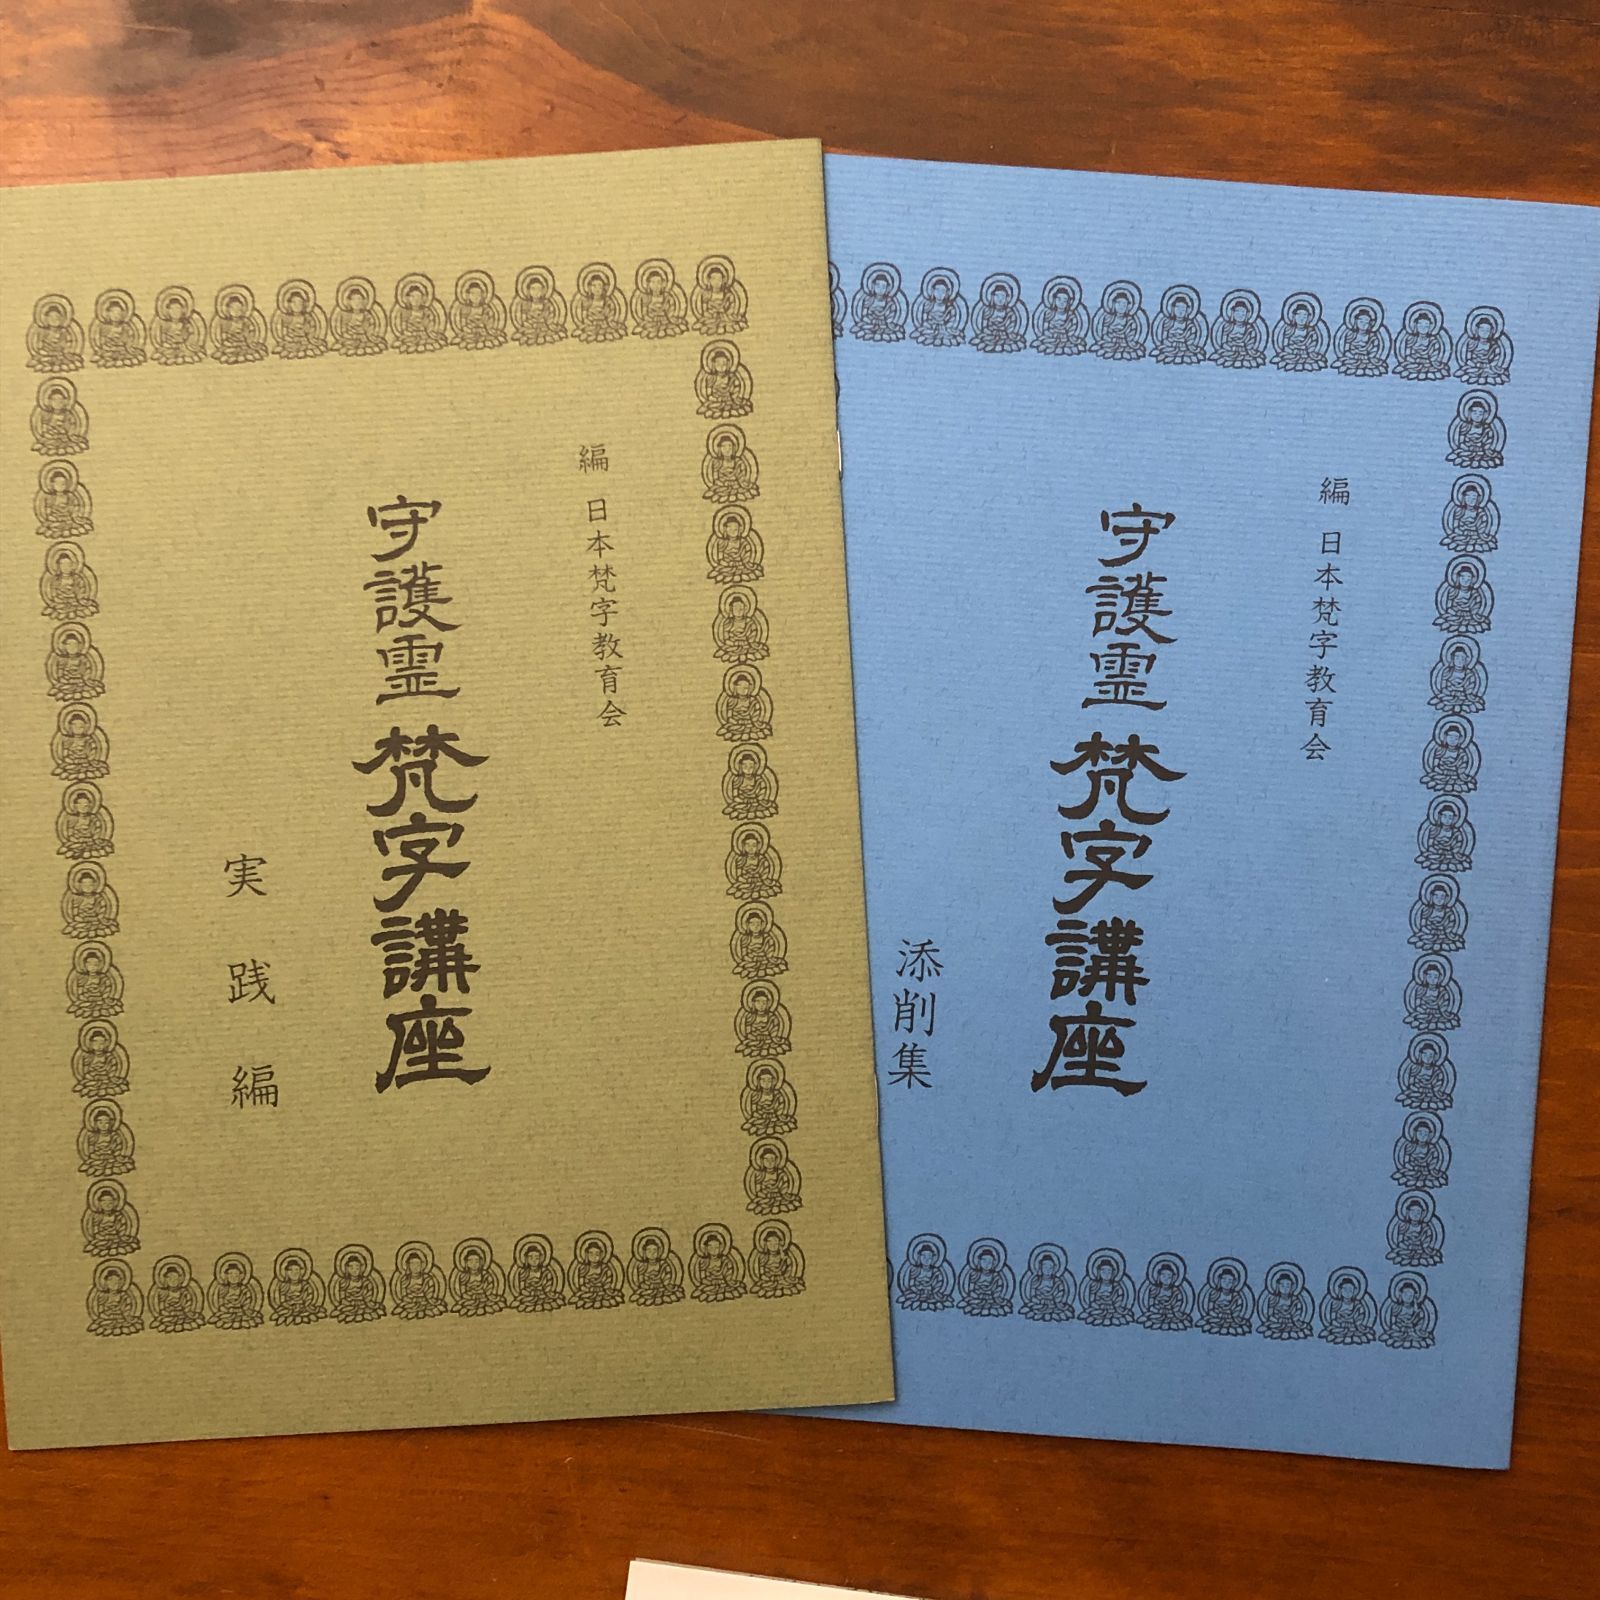 編 日本梵字教育会
守護霊 梵字講座
実践編
編 日本梵字教育会
守護霊 梵字講座
添削集